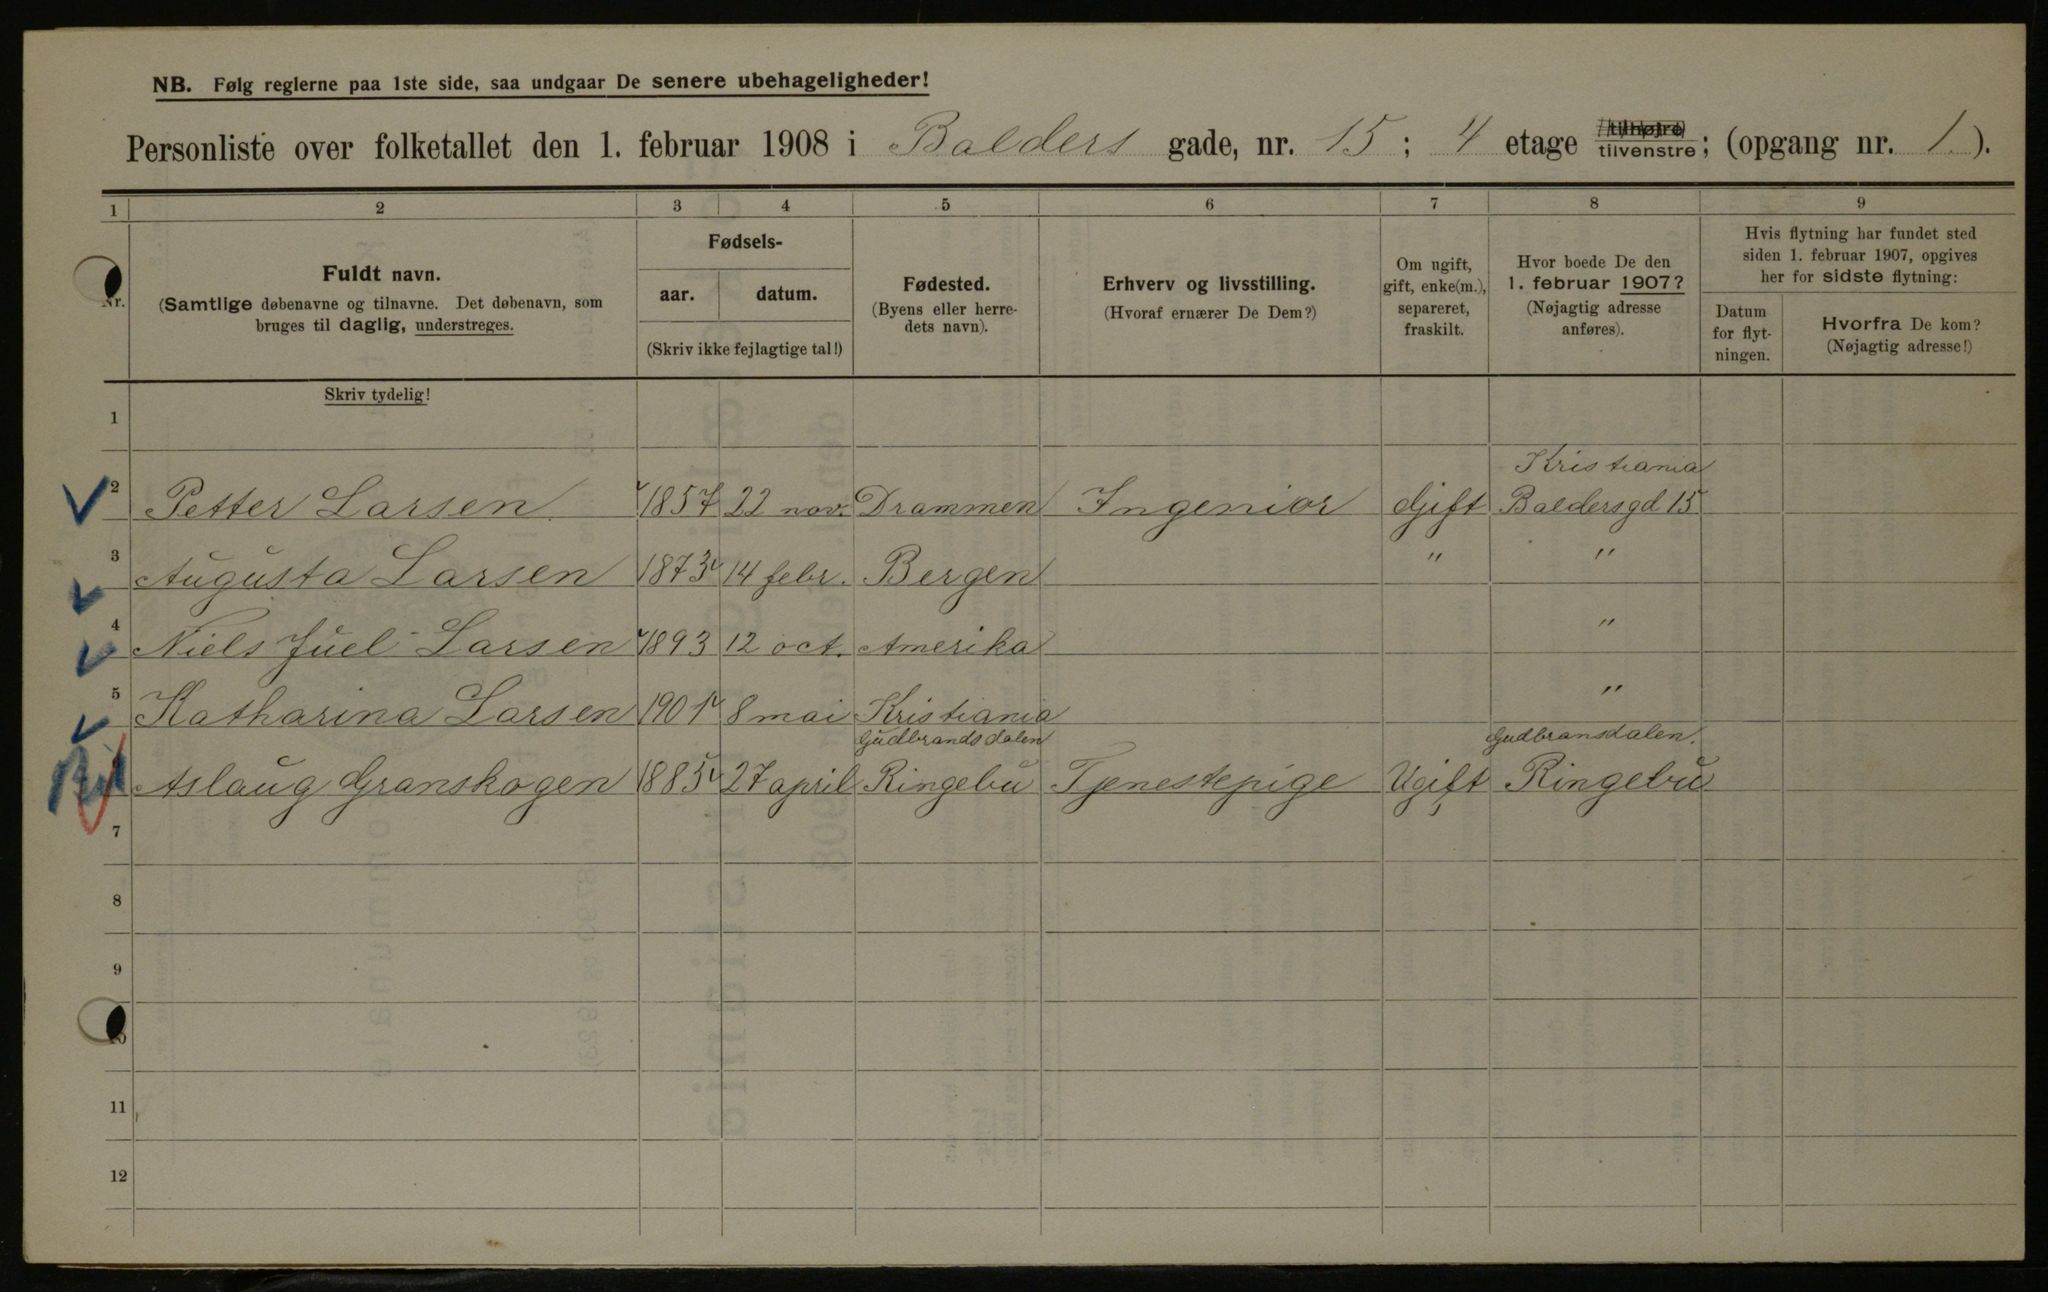 NB. Følg reglerne paa 1ste side, saa undgaar De senere ubehageligheder!
Personliste over folketallet den 1. februar 1908 i Balders gade, nr. 15 ; 4 etage tilhøjre tilvenstre ; (opgang nr. 1. ).
1 2 3 4 5 6 7 8 9
Nr.
Fuldt navn.
(Samtlige døbenavne og tilnavne. Det døbenavn, som
bruges til daglig, understreges.
Skriv tydelig!
Fødsels-
aar. datum.
(Skriv ikke fejlagtige tal!)
Fødested.
(Byens eller herre-
dets navn).
Erhverv og livsstilling.
(Hvoraf ernærer De Dem?)
Om ugift,
gift, enke(m.),
separeret,
fraskilt.
Hvor boede De den
1. februar 1907?
(Nøjagtig adresse
anføres).
Hvis flytning har fundet sted
siden 1. februar 1907, opgives
her for sidste flytning:
Datum
for flyt-
ningen.
Hvorfra De kom?
(Nøjagtig adresse!)
1
Kristiania
2 Petter Larsen 1857 22 nov. Drammen Ingeniør Gift Baldersgd 15
3 Augusta Larsen 1873 14 febr. Bergen " "
4 Niels Juel Larsen 1893 12 oct. Amerika "
5 Katharina Larsen 1901 8 mai Kristiania "
Gudbrandsdalen Gudbransdalen.
Aslaug Granskogen 1885 27 april Ringebu Tjenestepige Ugift Ringebu
7
8
9
10
11
12